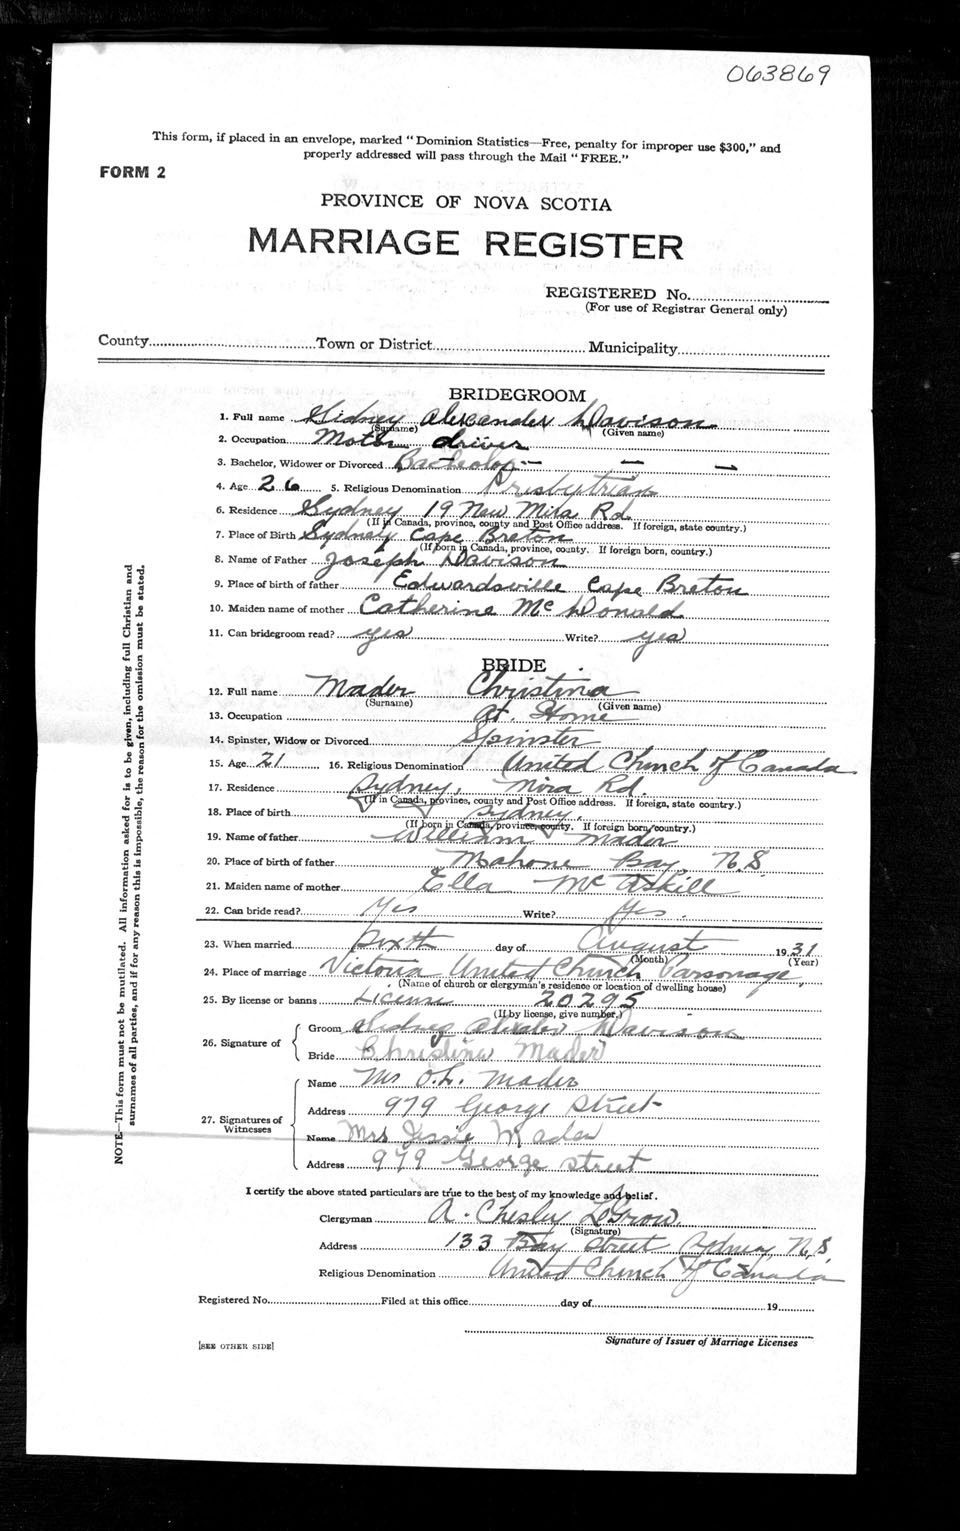 063869
This form, if placed in an envelope, marked "Dominion Statistics—Free, penalty for improper use $300," and
properly addressed will pass through the Mail "FREE."
FORM 2
PROVINCE OF NOVA SCOTIA
MARRIAGE REGISTER
REGISTERED No.
(For use of Registrar General only)
County Town or District Municipality
BRIDEGROOM
1. Full name Sidney Alexander Davison
(Surname) (Given name)
2. Occupation Motor driver
3. Bachelor, Widower or Divorced Bachelor — — —
4. Age 26 5. Religious Denomination Presbytrian
6. Residence Sydney 19 New Mira Rd
(If in Canada, province, county and Post Office address. If foreign, state country.)
7. Place of Birth Sydney Cape Breton
(If born in Canada, province, county. If foreign born, country.)
8. Name of Father Joseph Davison
9. Place of birth of father Edwardsville Cape Breton
10. Maiden name of mother Catherine McDonald
11. Can bridegroom read? yes Write? yes
BRIDE
12. Full name Mader Christina
(Surname) (Given name)
13. Occupation At Home
14. Spinster, Widow or Divorced Spinster
15. Age 21 16. Religious Denomination United Church of Canada
17. Residence Sydney, Mira Rd.
(If in Canada, province, county and Post Office address. If foreign, state country.)
18. Place of birth Sydney.
(If born in Canada, province, county. If foreign born, country.)
19. Name of father William Mader
20. Place of birth of father Mahone Bay, N.S.
21. Maiden name of mother Ella McAskill
22. Can bride read? Yes Write? Yes.
23. When married Sixth day of August 1931
(Month) (Year)
24. Place of marriage Victoria United Church Parsonage,
(Name of church or clergyman's residence or location of dwelling house)
25. By license or banns License 20295
(If by license, give number.)
26. Signature of
Groom Sidney Davison
Bride Christina Mader
27. Signatures of Witnesses
Name Mr O.L. Mader
Address 979 George Street
Name Mrs Jessie Mader
Address 979 George street
I certify the above stated particulars are true to the best of my knowledge and belief.
Clergyman A. Chesley LeGrow.
(Signature)
Address 133 Bay Street Sydney N.S.
Religious Denomination United Church of Canada
Registered No. Filed at this office day of 19
Signature of Issuer of Marriage Licenses
[SEE OTHER SIDE]
NOTE—This form must not be mutilated. All information asked for is to be given, including full Christian and
surnames of all parties, and if for any reason this is impossible, the reason for the omission must be stated.